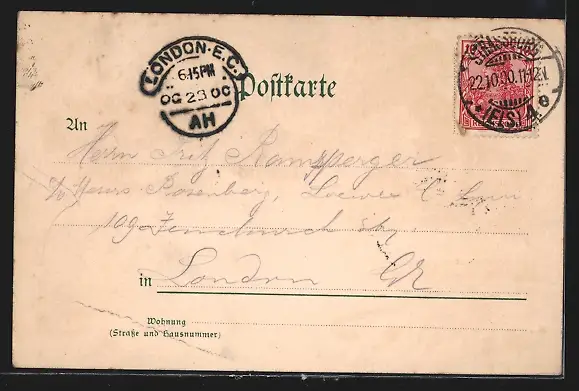 LONDON·E.C.
6.15PM
OC 23 00
AH
Postkarte
10
STRASSBURG
22.10.00.11-12V.
* (ELS) 4. e
An
Herrn Fritz Ramsperger
c/o Messrs Rosenberg, Loewe & Co
109 Fenchurch Str
in London EC
Wohnung
(Straße und Hausnummer)